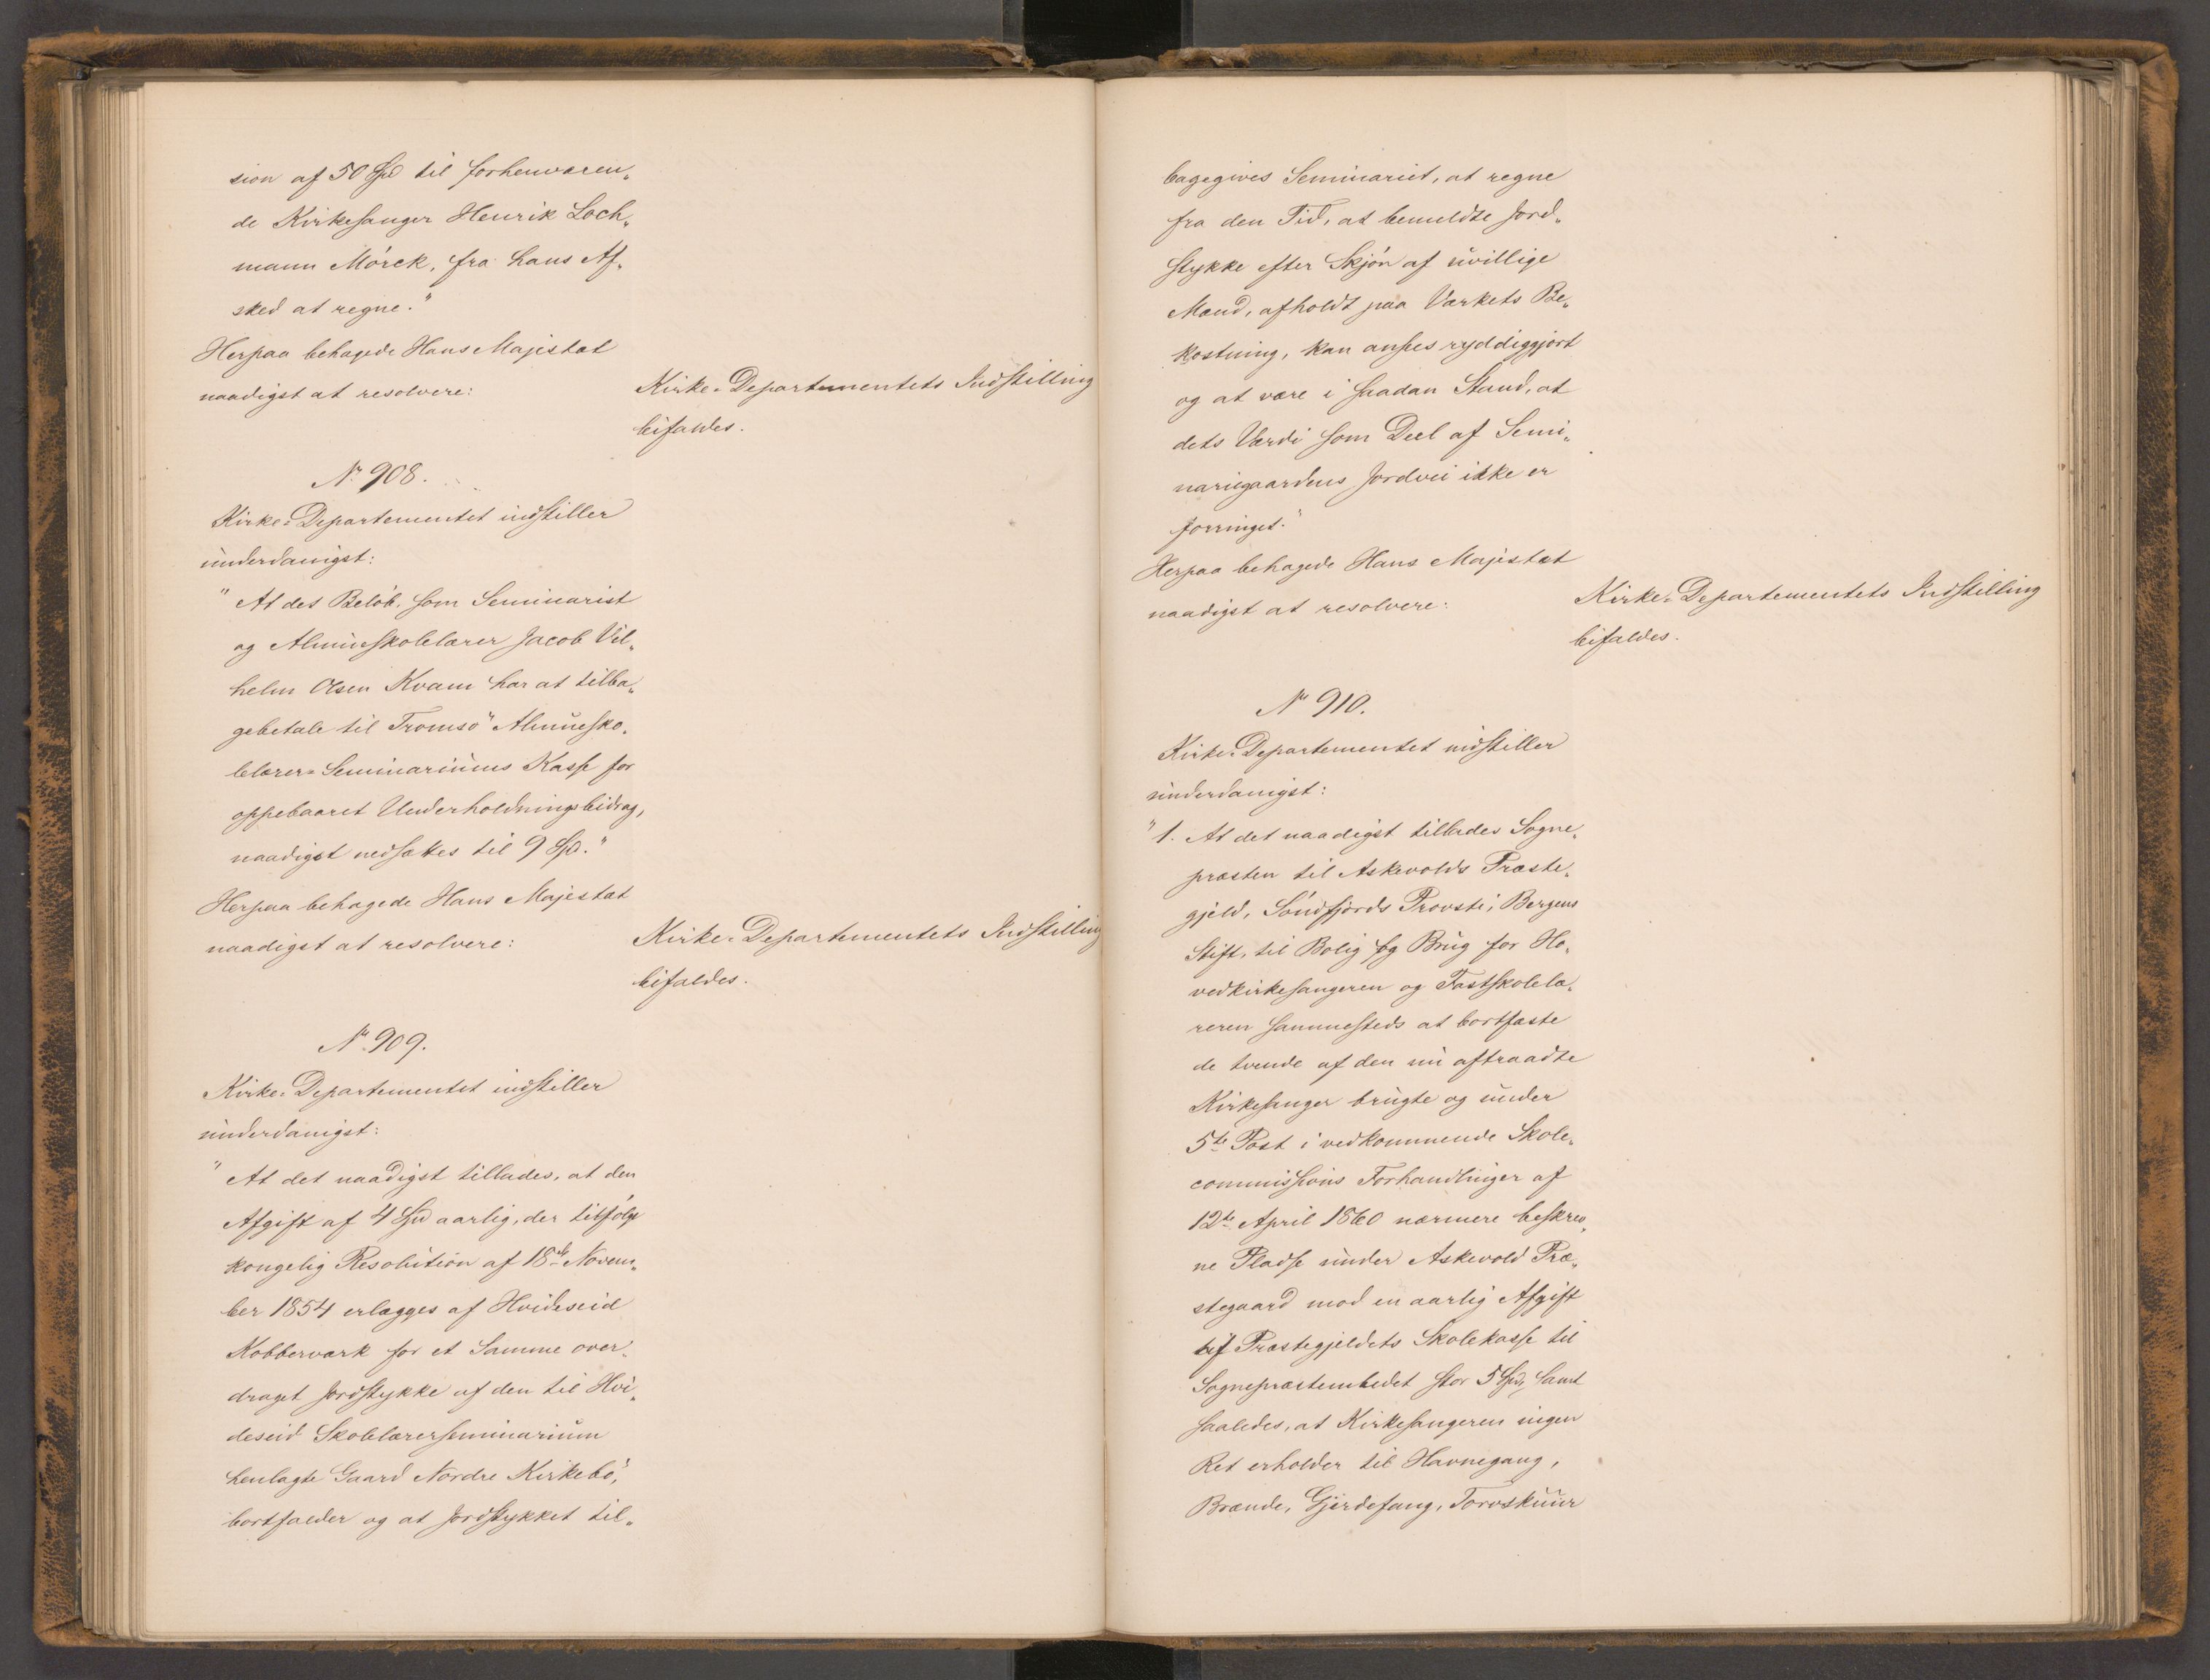 sion af 50 Spd til forhenværen„
de Kirkesanger Henrik Loch„
mann Mörck, fra hans Af„
sked at regne."
Herpaa behagede Hans Majestæt
naadigst at resolvere:
Kirke-Departementets Indstilling
bifaldes.
No 908.
Kirke-Departementet indstiller
underdanigst:
"At det Belöb, som Seminarist
og Almueskolelærer Jacob Vil„
helm Olsen Kvam har at tilba„
gebetale til Tromsö Almuesko„
lelærer-Seminariums Kasse for
oppebaaret Underholdningsbidrag,
naadigst nedsættes til 9 Spd."
Herpaa behagede Hans Majestæt
naadigst at resolvere:
Kirke-Departementets Indstilling
bifaldes.
No 909.
Kirke-Departementet indstiller
underdanigst:
"At det naadigst tillades, at den
Afgift af 4 Spd aarlig, der tilfölge
kongelig Resolution af 18de Novem„
ber 1854 erlægges af Hvideseid
Kobberværk for et Samme over„
draget Jordstykke af den til Hvi„
deseid Skolelærerseminarium
henlagte Gaard Nordre Kirkebö,
bortfalder og at Jordstykket til„
bagegives Seminariet, at regne
fra den Tid, at bemeldte Jord„
stykke efter Skjön af uvillige
Mænd, afholdt paa Værkets Be„
kostning, kan ansees ryddiggjort
og at være i saadan Stand, at
dets Værdi som Deel af Semi„
nariegaardens Jordvei ikke er
forringet."
Herpaa behagede Hans Majestæt
naadigst at resolvere:
Kirke-Departementets Indstilling
bifaldes.
No 910.
Kirke-Departementet indstiller
underdanigst:
"1. At det naadigst tillades Sogne„
præsten til Askevolds Præste„
gjeld, Söndfjords Provsti, Bergens
Stift, til Bolig og Brug for Ho„
vedkirkesangeren og Fastskolelæ„
reren sammesteds at bortfæste
de tvende af den nu aftraadte
Kirkesanger brugte og under
5te Post i vedkommende Skole„
commissions Forhandlinger af
12te April 1860 nærmere beskrev„
ne Pladse under Askevold Præ„
stegaard mod en aarlig Afgift
af Præstegjeldets Skolekasse til
Sognepræstembedet stor 5 Spd, samt
saaledes, at Kirkesangeren ingen
Ret erholder til Havnegang,
Brænde, Gjerdefang, Torvskuur